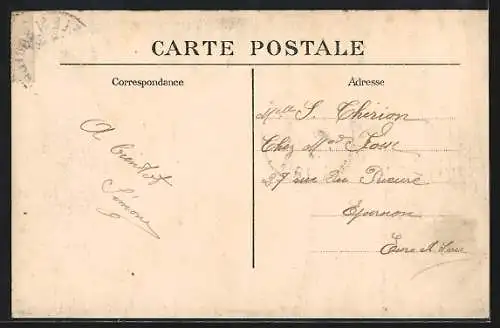 CARTE POSTALE
Correspondance
Adresse
A bientot
Simone
Melle S. Cherion
Chez Mad Josse
27 rue du Prieuré
Epernon
Eure et Loir